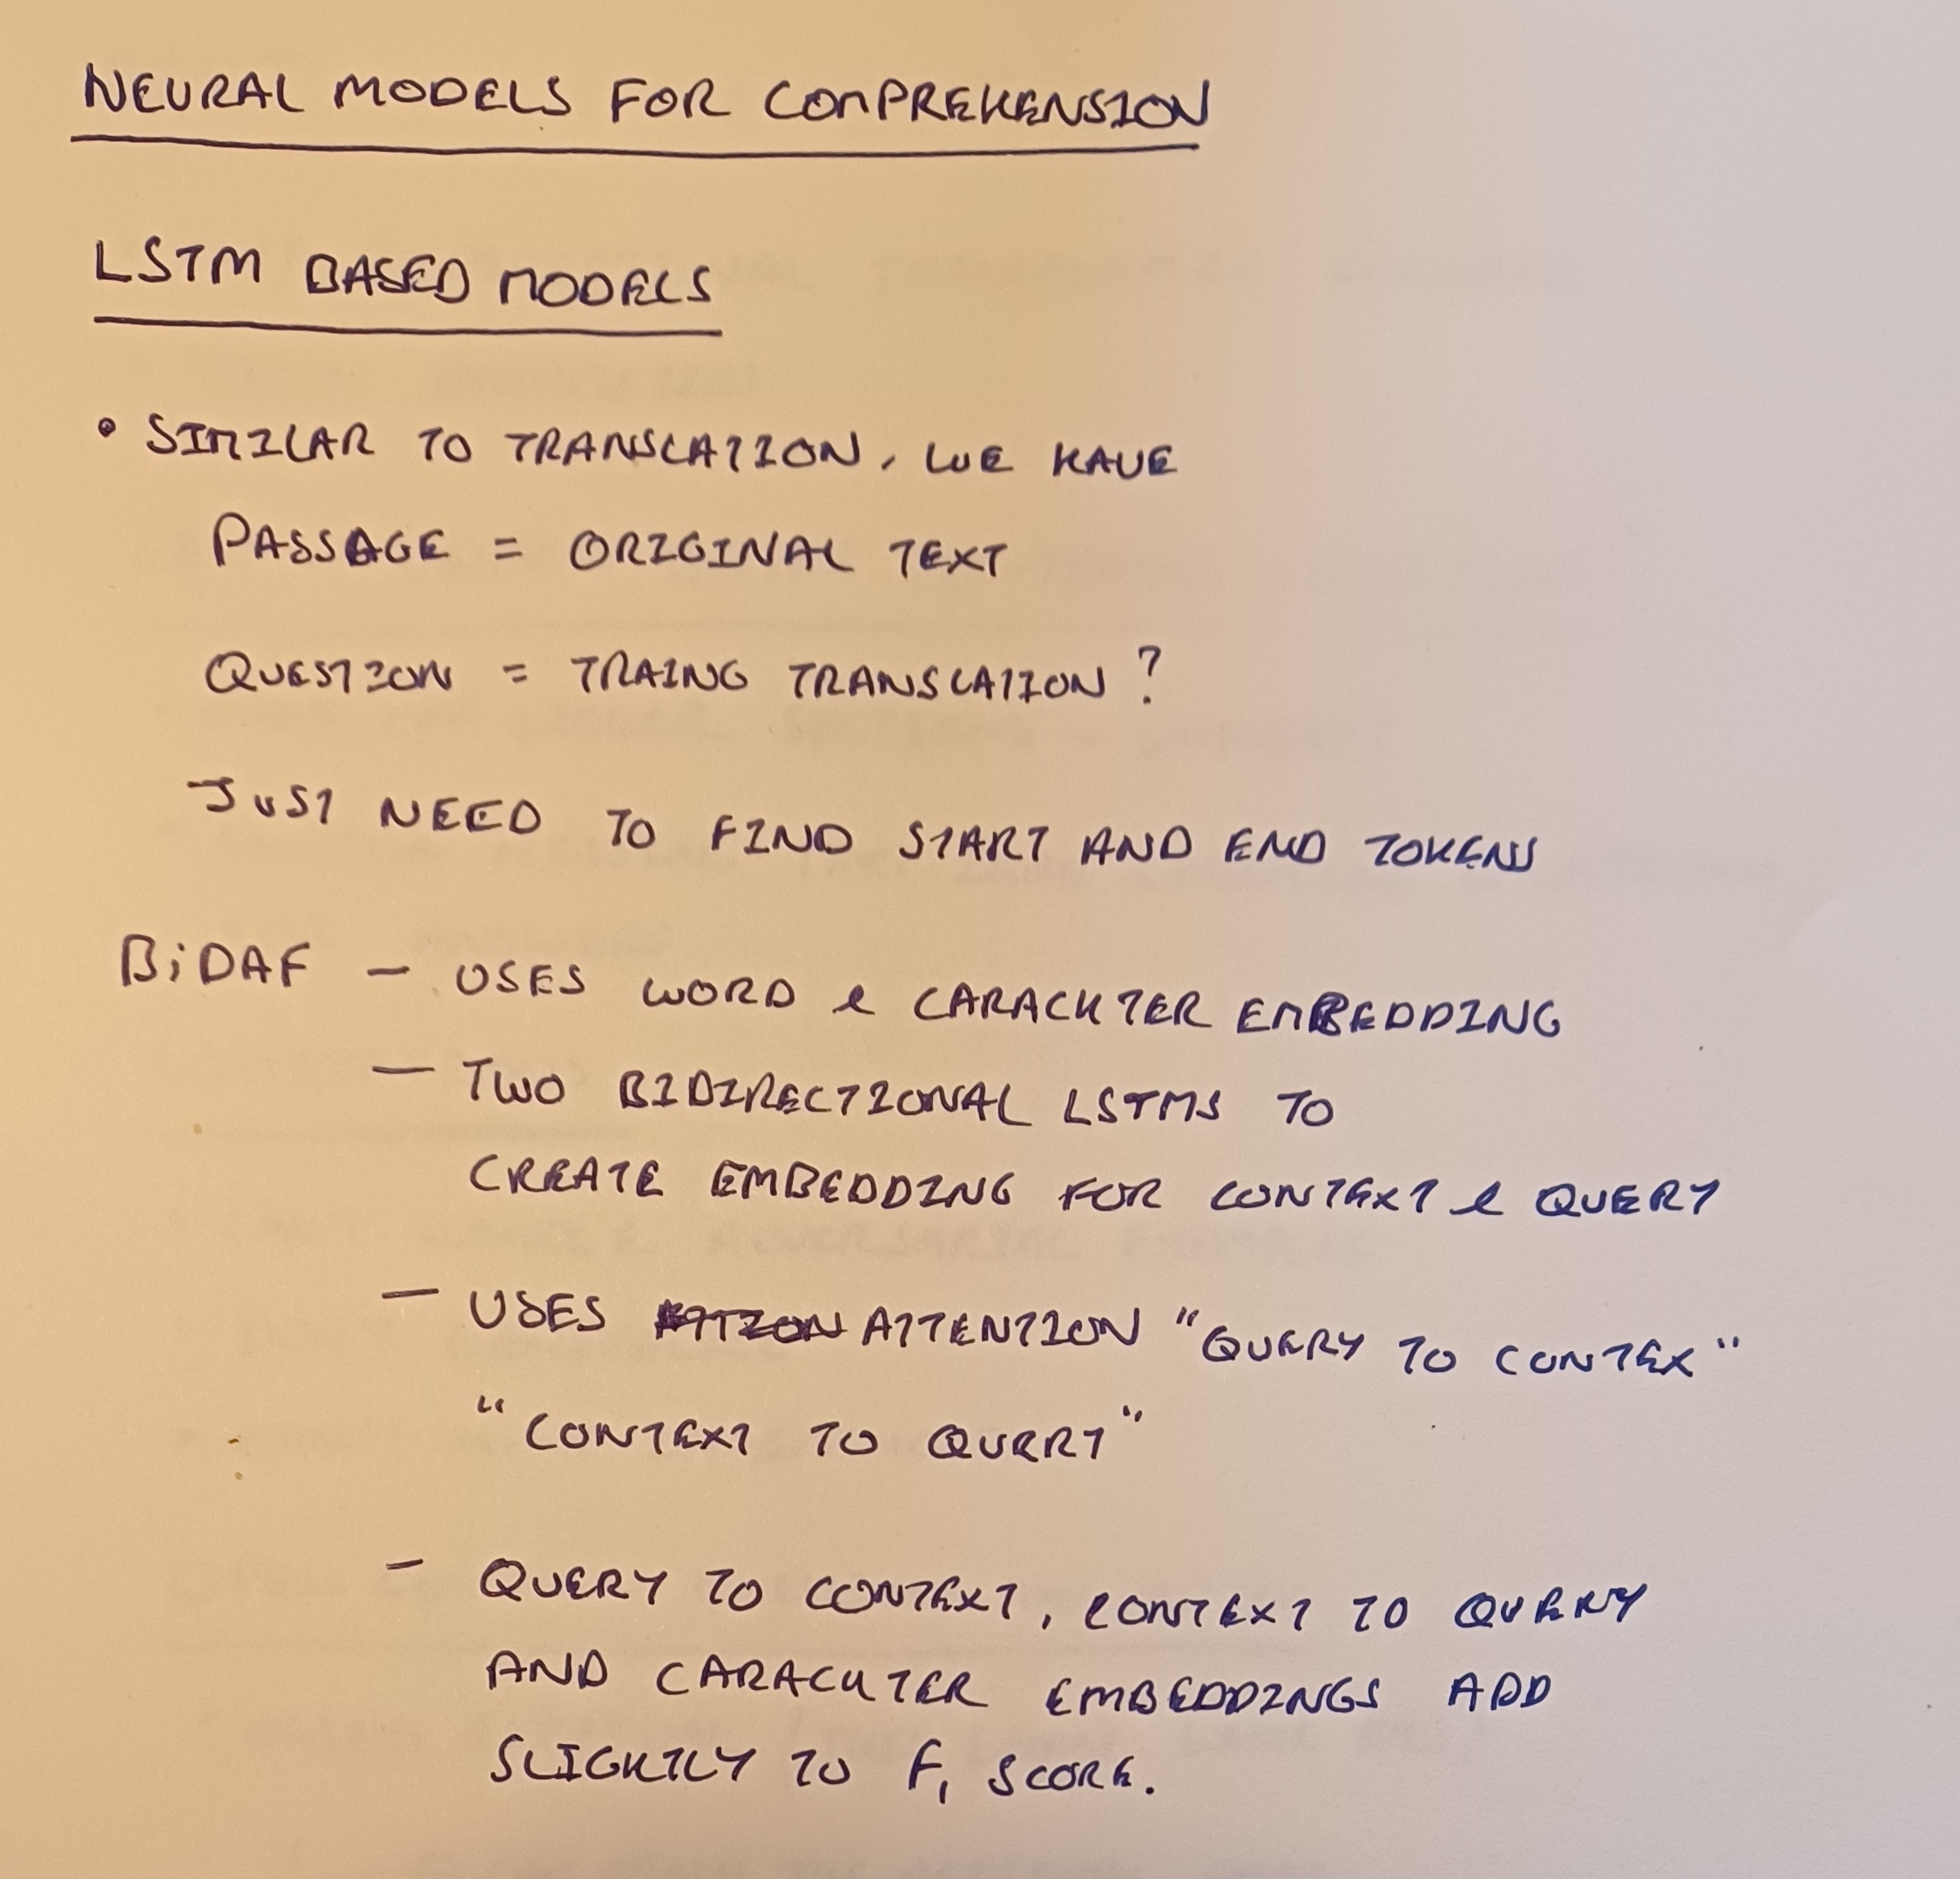 NEURAL MODELS FOR COMPREHENSION
LSTM BASED MODELS
• SIMILAR TO TRANSLATION, WE HAVE
PASSAGE = ORIGINAL TEXT
QUESTION = TRAING TRANSLATION?
JUST NEED TO FIND START AND END TOKENS
BiDAF – USES WORD & CARACKTER EMBEDDING
– TWO BIDIRECTIONAL LSTMS TO
CREATE EMBEDDING FOR CONTEXT & QUERY
– USES ATTENTION "QUERY TO CONTEX"
"CONTEXT TO QUERY"
– QUERY TO CONTEXT, CONTEXT TO QUERY
AND CARACKTER EMBEDDINGS ADD
SLIGHTLY TO F1 SCORE.